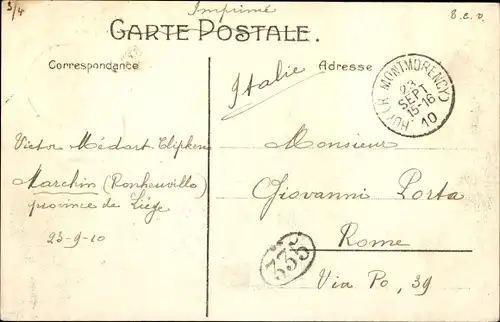 3/4
Imprimé
8. e. v.
CARTE POSTALE.
Correspondance
Adresse
Italie
HUY (R. MONTMORENCY)
23
SEPT
15-16
10
Victor Médart-Clipkers
Monsieur
Marchin (Ronheuville)
Giovanni Porta
province de Liège
Rome
23-9-10
335
Via Po, 39